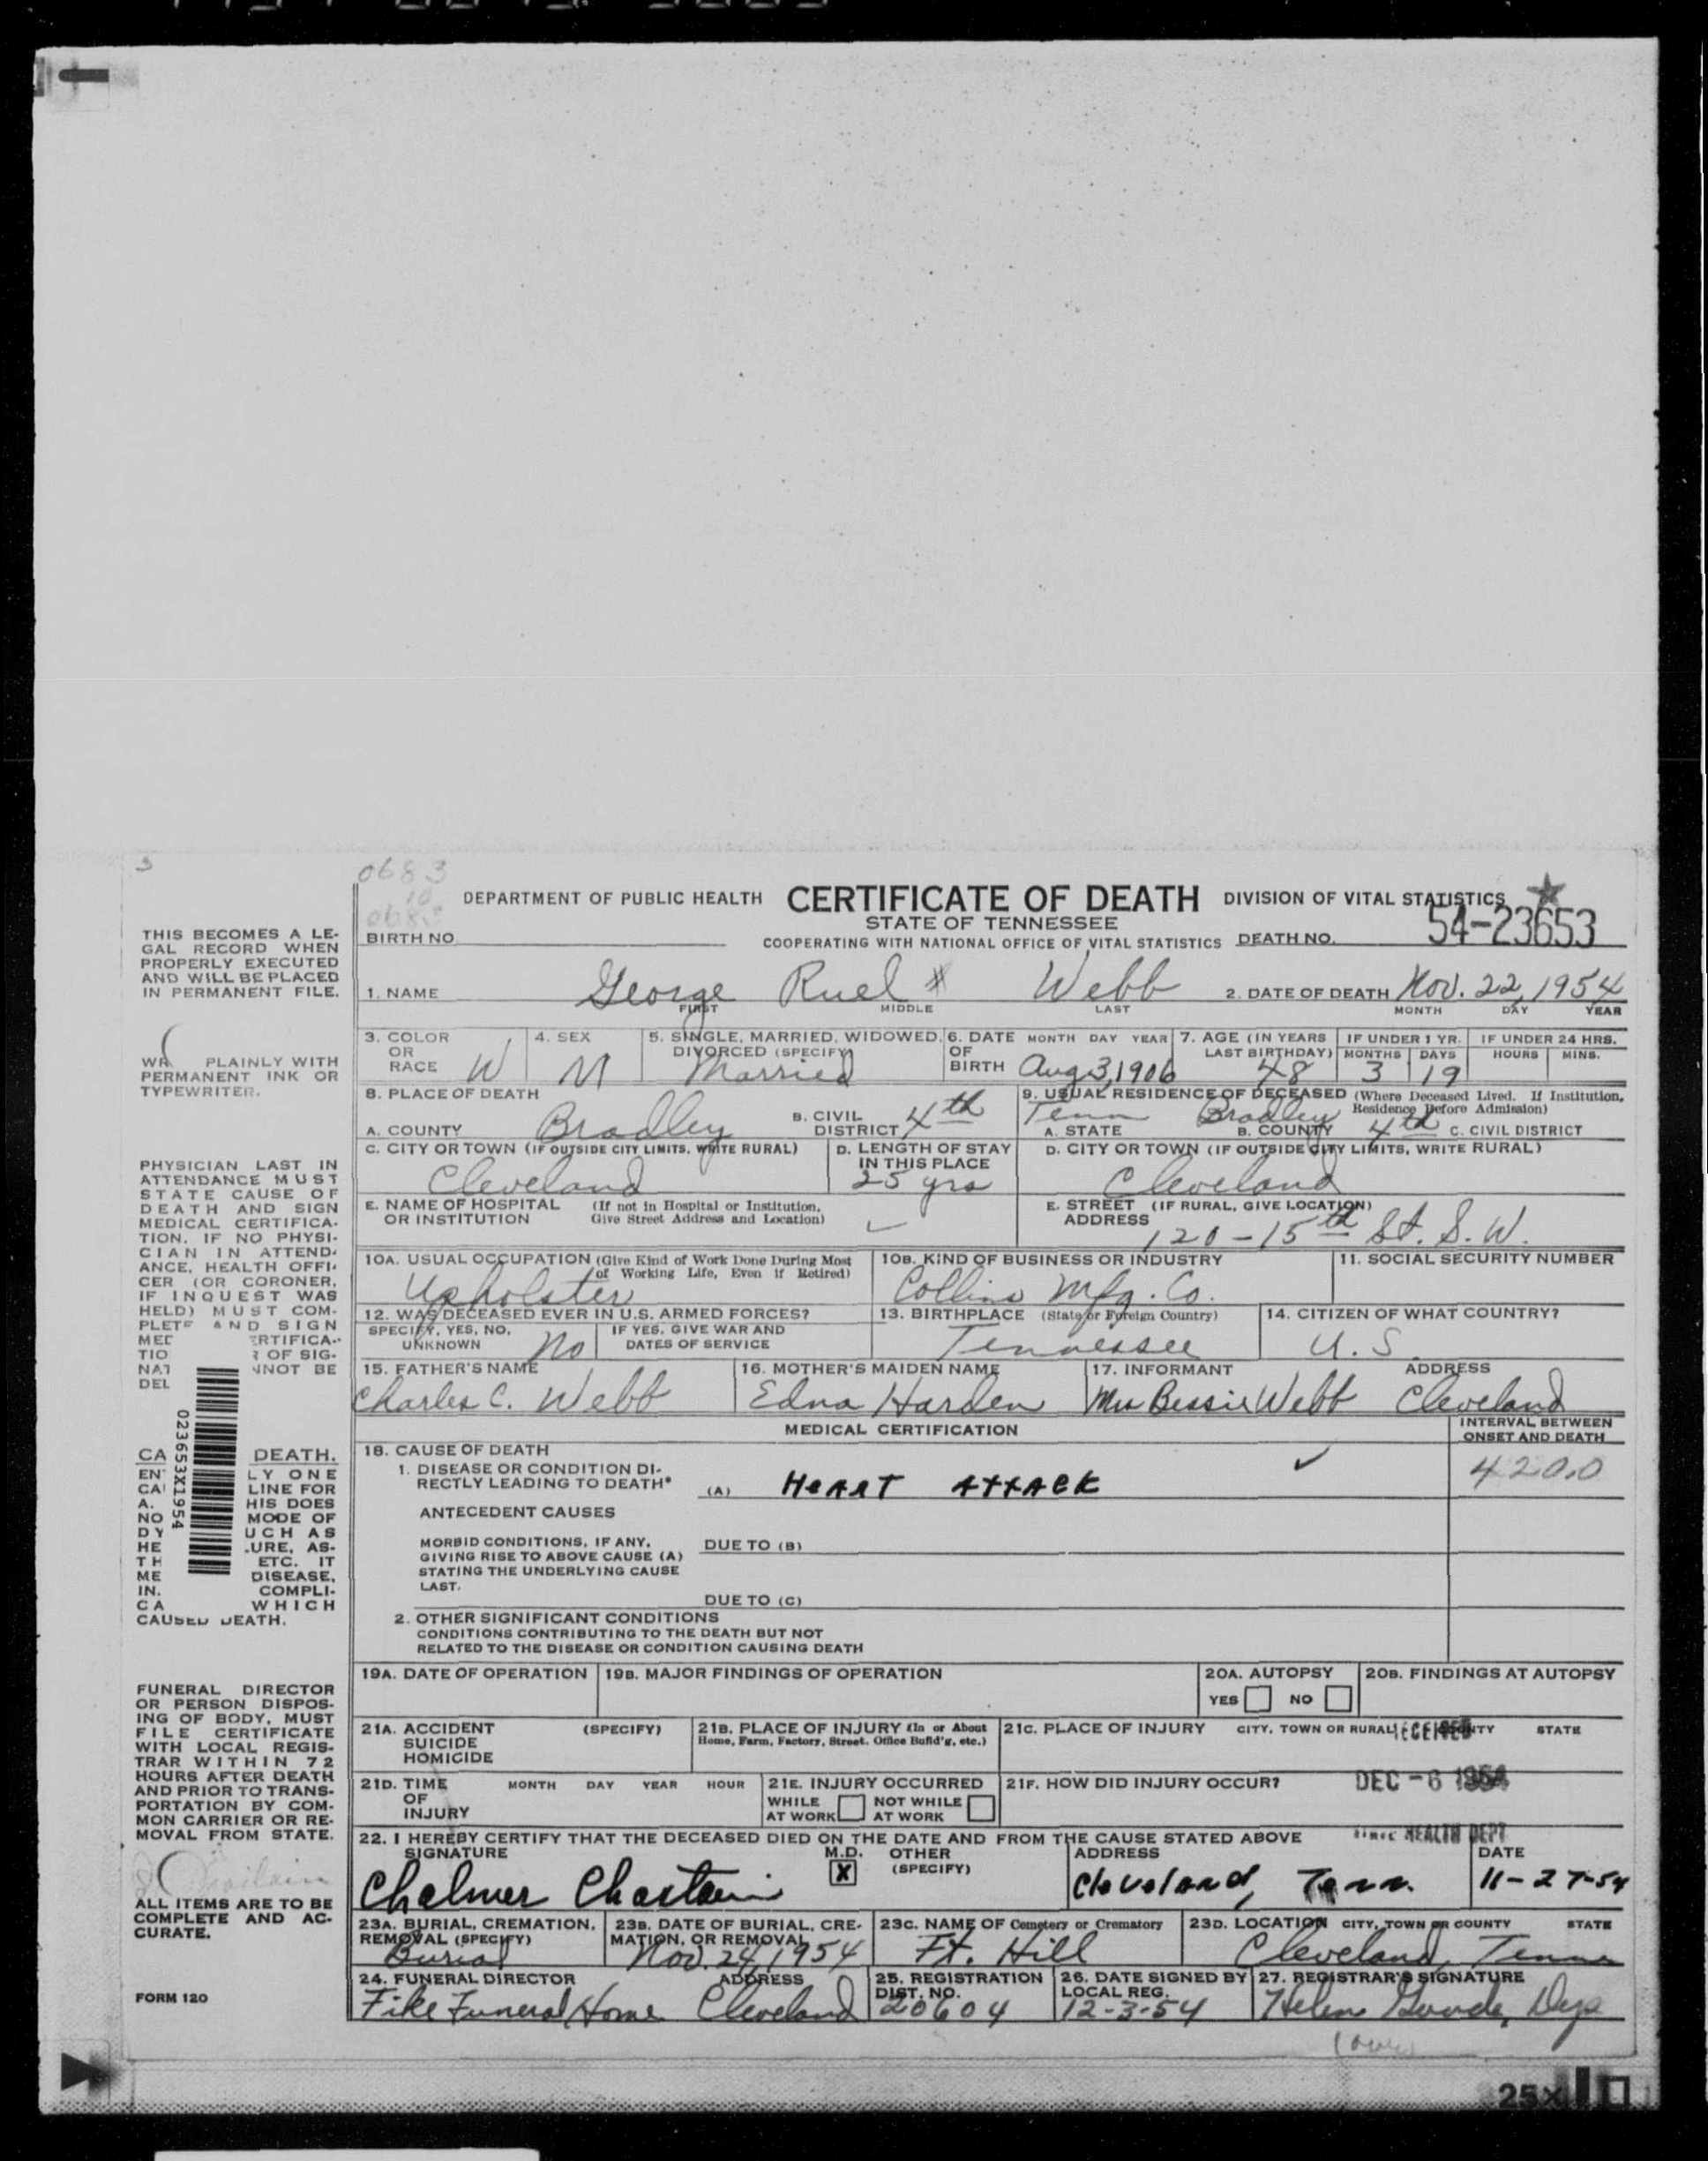 0683
10
0683
DEPARTMENT OF PUBLIC HEALTH CERTIFICATE OF DEATH DIVISION OF VITAL STATISTICS
STATE OF TENNESSEE
54-23653
BIRTH NO. COOPERATING WITH NATIONAL OFFICE OF VITAL STATISTICS DEATH NO.
THIS BECOMES A LE-
GAL RECORD WHEN
PROPERLY EXECUTED
AND WILL BE PLACED
IN PERMANENT FILE.
1. NAME George Ruel Webb 2. DATE OF DEATH Nov. 22, 1954
FIRST MIDDLE LAST MONTH DAY YEAR
3. COLOR OR RACE W
4. SEX M
5. SINGLE, MARRIED, WIDOWED, DIVORCED (SPECIFY) Married
6. DATE OF BIRTH MONTH DAY YEAR Aug 3, 1906
7. AGE (IN YEARS LAST BIRTHDAY) 48
IF UNDER 1 YR. MONTHS 3 DAYS 19
IF UNDER 24 HRS. HOURS MINS.
PLAINLY WITH
PERMANENT INK OR
TYPEWRITER.
8. PLACE OF DEATH
A. COUNTY Bradley
B. CIVIL DISTRICT 4th
9. USUAL RESIDENCE OF DECEASED (Where Deceased Lived. If Institution, Residence Before Admission)
Tenn Bradley 4th
A. STATE B. COUNTY C. CIVIL DISTRICT
C. CITY OR TOWN (IF OUTSIDE CITY LIMITS, WRITE RURAL) Cleveland
D. LENGTH OF STAY IN THIS PLACE 25 yrs
D. CITY OR TOWN (IF OUTSIDE CITY LIMITS, WRITE RURAL) Cleveland
E. NAME OF HOSPITAL OR INSTITUTION (If not in Hospital or Institution, Give Street Address and Location)
E. STREET ADDRESS (IF RURAL, GIVE LOCATION) 120-15th St. S.W.
PHYSICIAN LAST IN
ATTENDANCE MUST
STATE CAUSE OF
DEATH AND SIGN
MEDICAL CERTIFICA-
TION. IF NO PHYSI-
CIAN IN ATTEND-
ANCE, HEALTH OFFI-
CER (OR CORONER,
IF INQUEST WAS
HELD) MUST COM-
PLETE AND SIGN
MED ERTIFICA-
TIO OF SIG-
NAT NNOT BE
DEL
10A. USUAL OCCUPATION (Give Kind of Work Done During Most of Working Life, Even if Retired) Upholster
10B. KIND OF BUSINESS OR INDUSTRY Collins Mfg. Co.
11. SOCIAL SECURITY NUMBER
12. WAS DECEASED EVER IN U.S. ARMED FORCES?
SPECIFY, YES, NO, UNKNOWN No
IF YES, GIVE WAR AND DATES OF SERVICE
13. BIRTHPLACE (State or Foreign Country) Tennessee
14. CITIZEN OF WHAT COUNTRY? U.S.
15. FATHER'S NAME Charles C. Webb
16. MOTHER'S MAIDEN NAME Edna Harden
17. INFORMANT ADDRESS Mrs Bessie Webb Cleveland
023653X1954
MEDICAL CERTIFICATION
INTERVAL BETWEEN ONSET AND DEATH
18. CAUSE OF DEATH
1. DISEASE OR CONDITION DI-
RECTLY LEADING TO DEATH* (A) HEART ATTACK 420.0
ANTECEDENT CAUSES
MORBID CONDITIONS, IF ANY, DUE TO (B)
GIVING RISE TO ABOVE CAUSE (A)
STATING THE UNDERLYING CAUSE
LAST.
DUE TO (C)
2. OTHER SIGNIFICANT CONDITIONS
CONDITIONS CONTRIBUTING TO THE DEATH BUT NOT
RELATED TO THE DISEASE OR CONDITION CAUSING DEATH
CA DEATH.
EN LY ONE
CA LINE FOR
A. HIS DOES
NO MODE OF
DY UCH AS
HE URE, AS-
TH ETC. IT
ME DISEASE,
IN. COMPLI-
CA WHICH
CAUSED DEATH.
19A. DATE OF OPERATION
19B. MAJOR FINDINGS OF OPERATION
20A. AUTOPSY YES NO
20B. FINDINGS AT AUTOPSY
21A. ACCIDENT SUICIDE HOMICIDE (SPECIFY)
21B. PLACE OF INJURY (In or About Home, Farm, Factory, Street, Office Build'g, etc.)
21C. PLACE OF INJURY CITY, TOWN OR RURAL COUNTY STATE
RECEIVED
21D. TIME OF INJURY MONTH DAY YEAR HOUR
21E. INJURY OCCURRED WHILE AT WORK NOT WHILE AT WORK
21F. HOW DID INJURY OCCUR?
DEC -6 1954
HEALTH DEPT
FUNERAL DIRECTOR
OR PERSON DISPOS-
ING OF BODY, MUST
FILE CERTIFICATE
WITH LOCAL REGIS-
TRAR WITHIN 72
HOURS AFTER DEATH
AND PRIOR TO TRANS-
PORTATION BY COM-
MON CARRIER OR RE-
MOVAL FROM STATE.
22. I HEREBY CERTIFY THAT THE DECEASED DIED ON THE DATE AND FROM THE CAUSE STATED ABOVE
SIGNATURE M.D. OTHER (SPECIFY) ADDRESS DATE
Chalmer Chastain X Cleveland, Tenn. 11-27-54
ALL ITEMS ARE TO BE
COMPLETE AND AC-
CURATE.
23A. BURIAL, CREMATION, REMOVAL (SPECIFY) Burial
23B. DATE OF BURIAL, CRE-MATION, OR REMOVAL Nov. 24, 1954
23C. NAME OF Cemetery or Crematory Ft. Hill
23D. LOCATION CITY, TOWN OR COUNTY STATE Cleveland, Tenn
24. FUNERAL DIRECTOR ADDRESS Fike Funeral Home Cleveland
25. REGISTRATION DIST. NO. 20604
26. DATE SIGNED BY LOCAL REG. 12-3-54
27. REGISTRAR'S SIGNATURE Helen Dep
FORM 120
25X